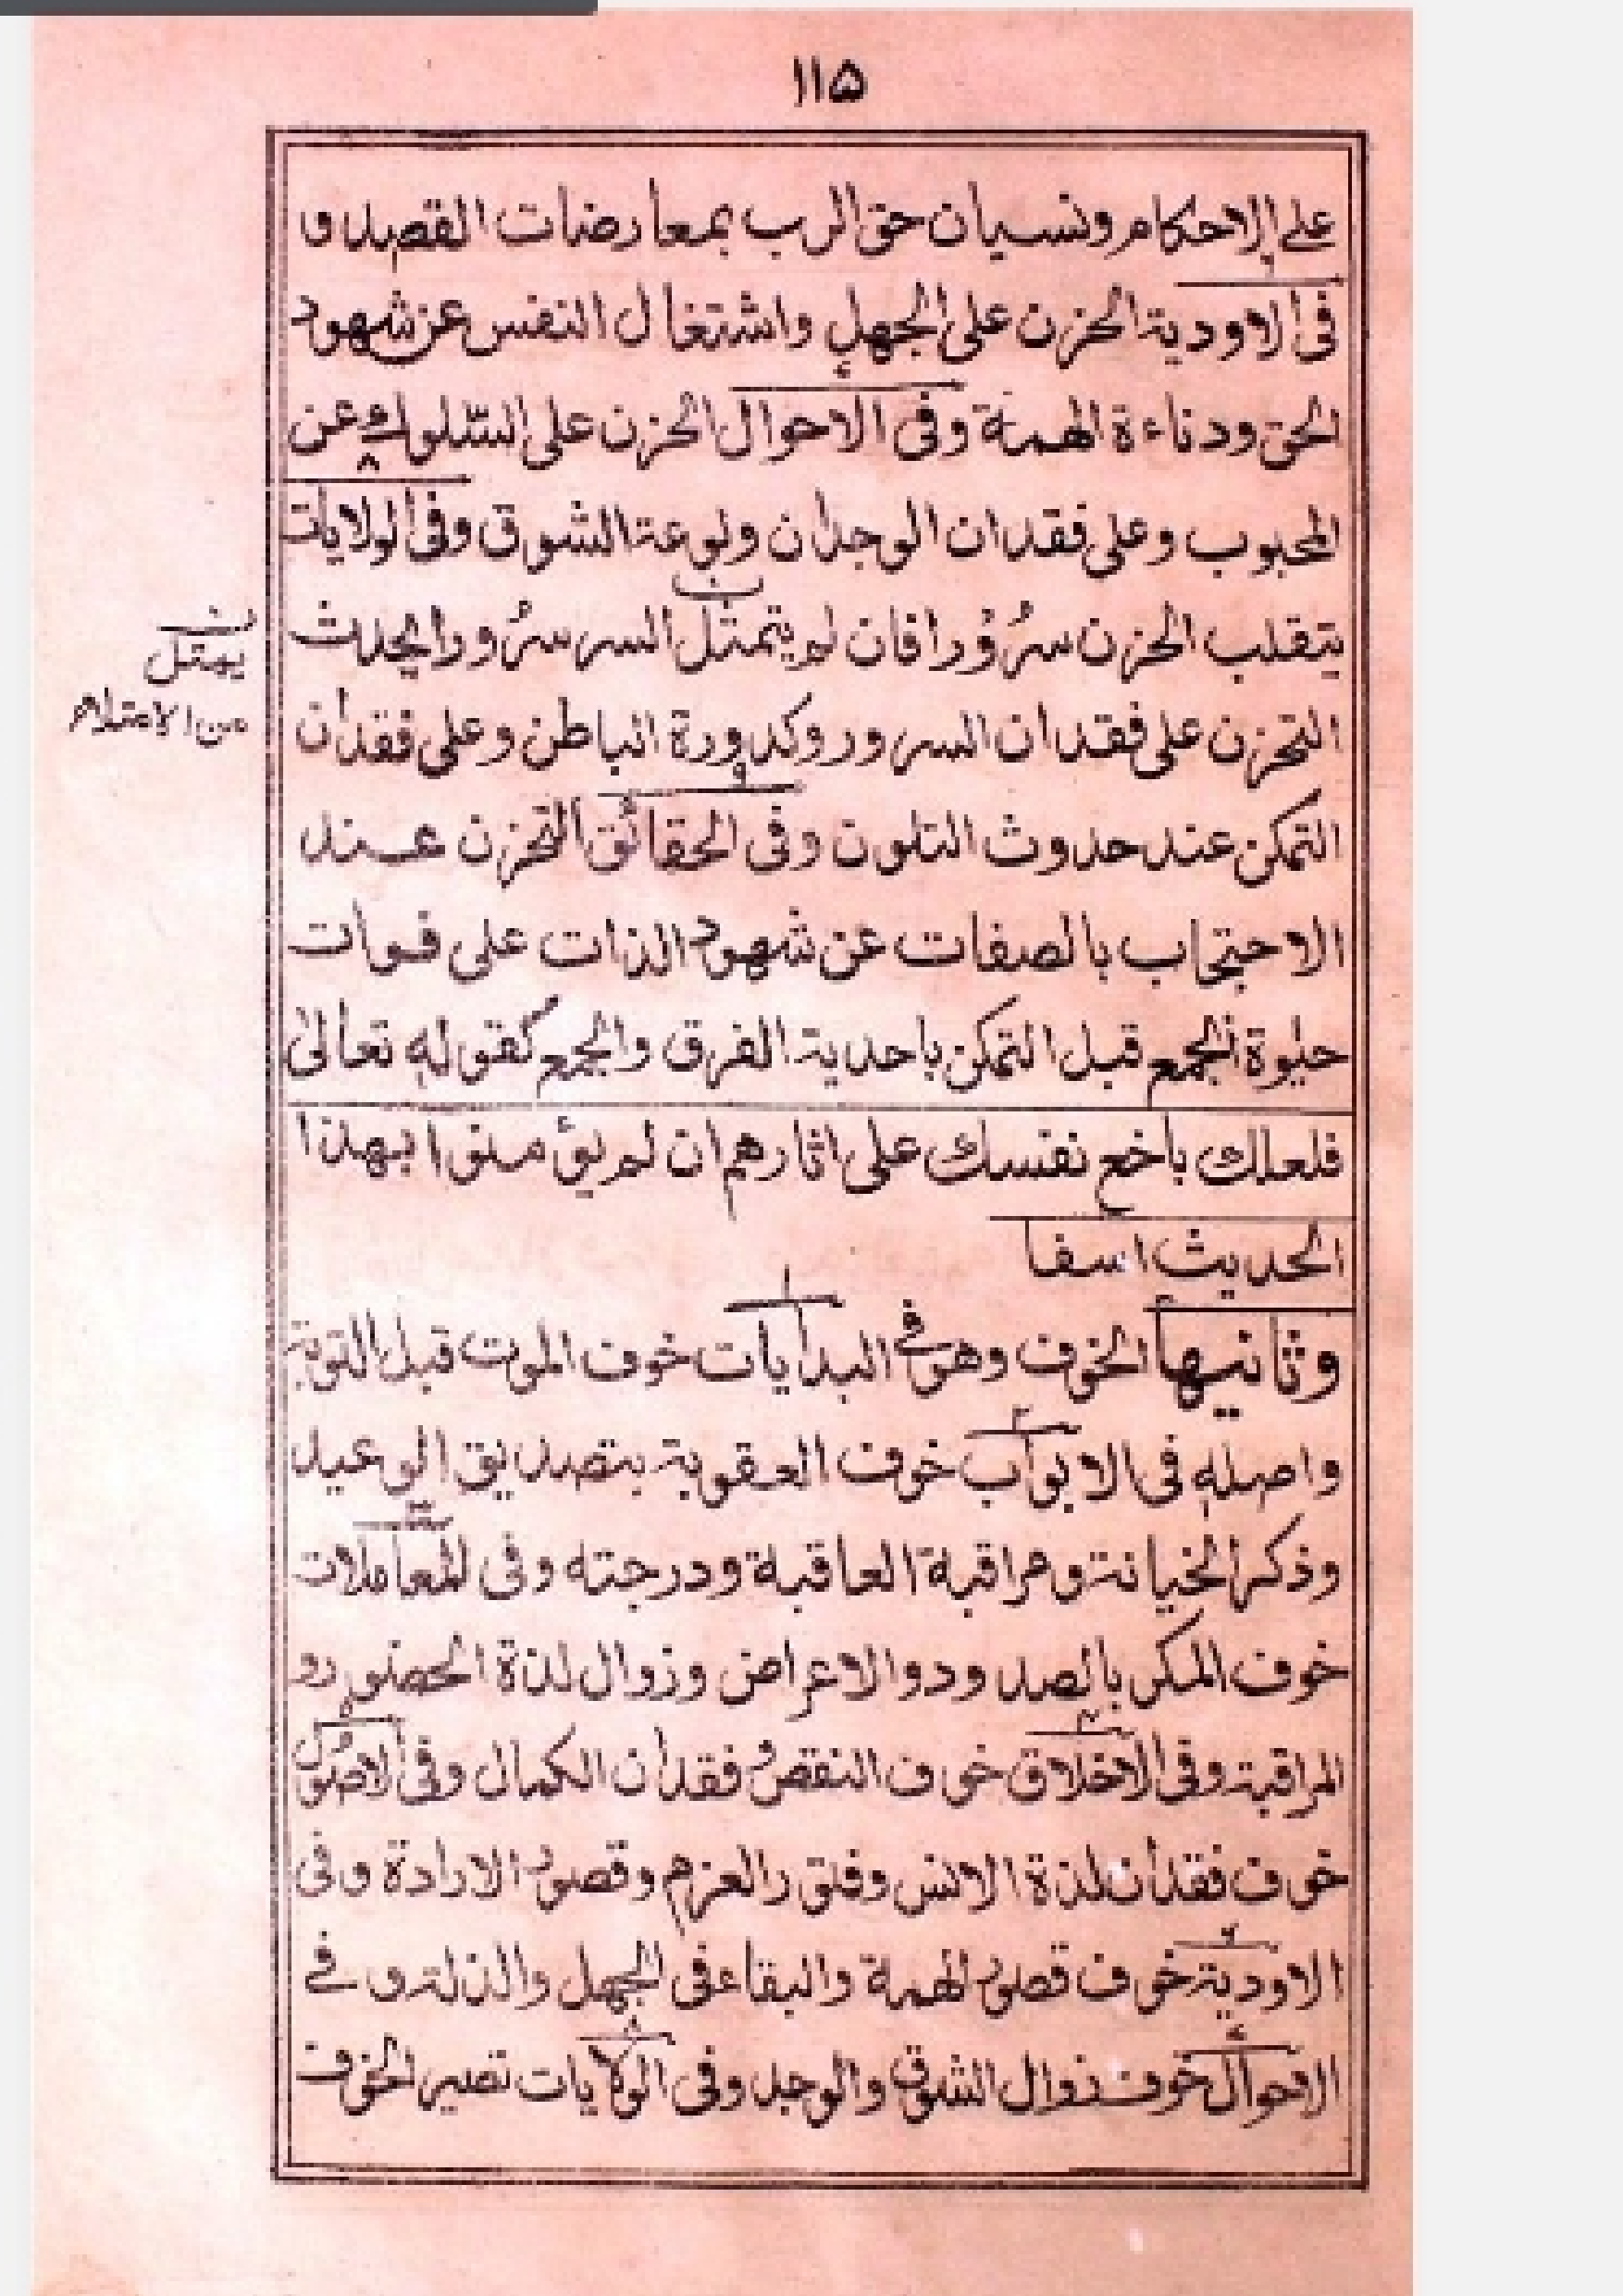 ۱۱۵
على الاحكام ونسيان حق الرب بمعارضات القصد و
فى الاودية الحزن على الجهل واشتغال النفس عن شهود
الحق ودناءة الهمة وفى الاحوال الحزن على السلو عن
المحبوب وعلى فقدان الوجدان ولوعة الشوق وفى الولايات
يتقلب الحزن سرورا فان لم يتمثل السر سرورا يحدث
ن
يمتل
من الامتلاء
التحزن على فقدان السرور وكدورة الباطن وعلى فقدان
التمكن عند حدوث التلون وفى الحقائق التحزن عند
الاحتجاب بالصفات عن شهود الذات على فوات
حلوة الجمع قبل التمكن باحدية الفرق والجمع كقوله تعالى
فلعلك باخع نفسك على اثارهم ان لم يؤمنوا بهذا
الحديث اسفا
وثانيها الخوف وهو فى البدايات خوف الموت قبل التوبة
واصله فى الابواب خوف العقوبة بتصديق الوعيد
وذكر الخيانة ومراقبة العاقبة ودرجته وفى المعاملات
خوف المكر بالصدود والاعراض وزوال لذة الحضور و
المراقبة وفى الاخلاق خوف النقص وفقدان الكمال وفى الاصول
خوف فقدان لذة الانس وفتور العزم وقصور الارادة وفى
الاودية خوف قصور الهمة والبقاء فى الجهل والذلة و فى
الاحوال خوف زوال الشوق والوجد وفى الولايات تصير الخوف